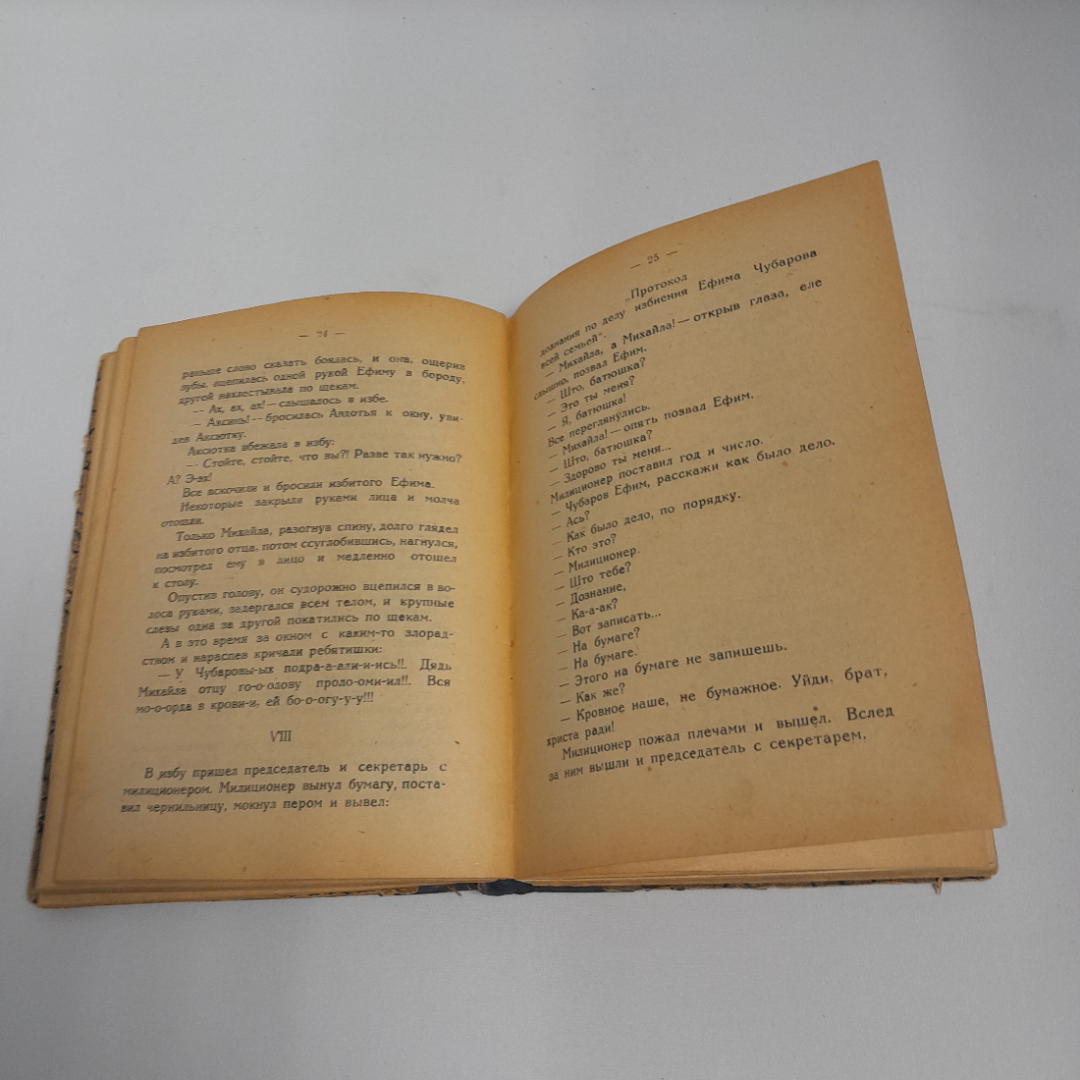 — 24 —
раньше слово сказать боялась, и она, ощерив
зубы, вцепилась одной рукой Ефиму в бороду,
другой нахлестывала по щекам.
— Ах, ах, ах! — слышалось в избе.
— Аксинь! — бросилась Авдотья к окну, уви-
дев Аксютку.
Аксютка вбежала в избу:
— Стойте, стойте, что вы?! Разве так нужно?
А? Э-эх!
Все вскочили и бросили избитого Ефима.
Некоторые закрыли руками лица и молча
отошли.
Только Михайла, разогнув спину, долго глядел
на избитого отца, потом ссуглобившись, нагнулся,
посмотрел ему в лицо и медленно отошел
к столу.
Опустив голову, он судорожно вцепился в во-
лоса руками, задергался всем телом, и крупные
слезы одна за другой покатились по щекам.
А в это время за окном с каким-то злорад-
ством и нараспев кричали ребятишки:
— У Чубаровы-ых подра-а-али-и-ись!!. Дядь
Михайла отцу го-о-олову проло-оми-ил!!. Вся
мо-о-орда в крови-и, ей бо-о-огу-у-у!!!
VIII
В избу пришел председатель и секретарь с
милиционером. Милиционер вынул бумагу, поста-
вил чернильницу, мокнул пером и вывел:
— 25 —
„Протокол
дознания по делу избиения Ефима Чубарова
всей семьей".
— Михайла, а Михайла! — открыв глаза, еле
слышно, позвал Ефим.
— Што, батюшка?
— Это ты меня?
— Я, батюшка!
Все переглянулись.
— Михайла! — опять позвал Ефим.
— Што, батюшка?
— Здорово ты меня...
Милиционер поставил год и число.
— Чубаров Ефим, расскажи как было дело.
— Ась?
— Как было дело, по порядку.
— Кто это?
— Милиционер.
— Што тебе?
— Дознание,
— Ка-а-ак?
— Вот записать...
— На бумаге?
— На бумаге.
— Этого на бумаге не запишешь.
— Как же?
— Кровное наше, не бумажное. Уйди, брат,
христа ради!
Милиционер пожал плечами и вышел. Вслед
за ним вышли и председатель с секретарем.